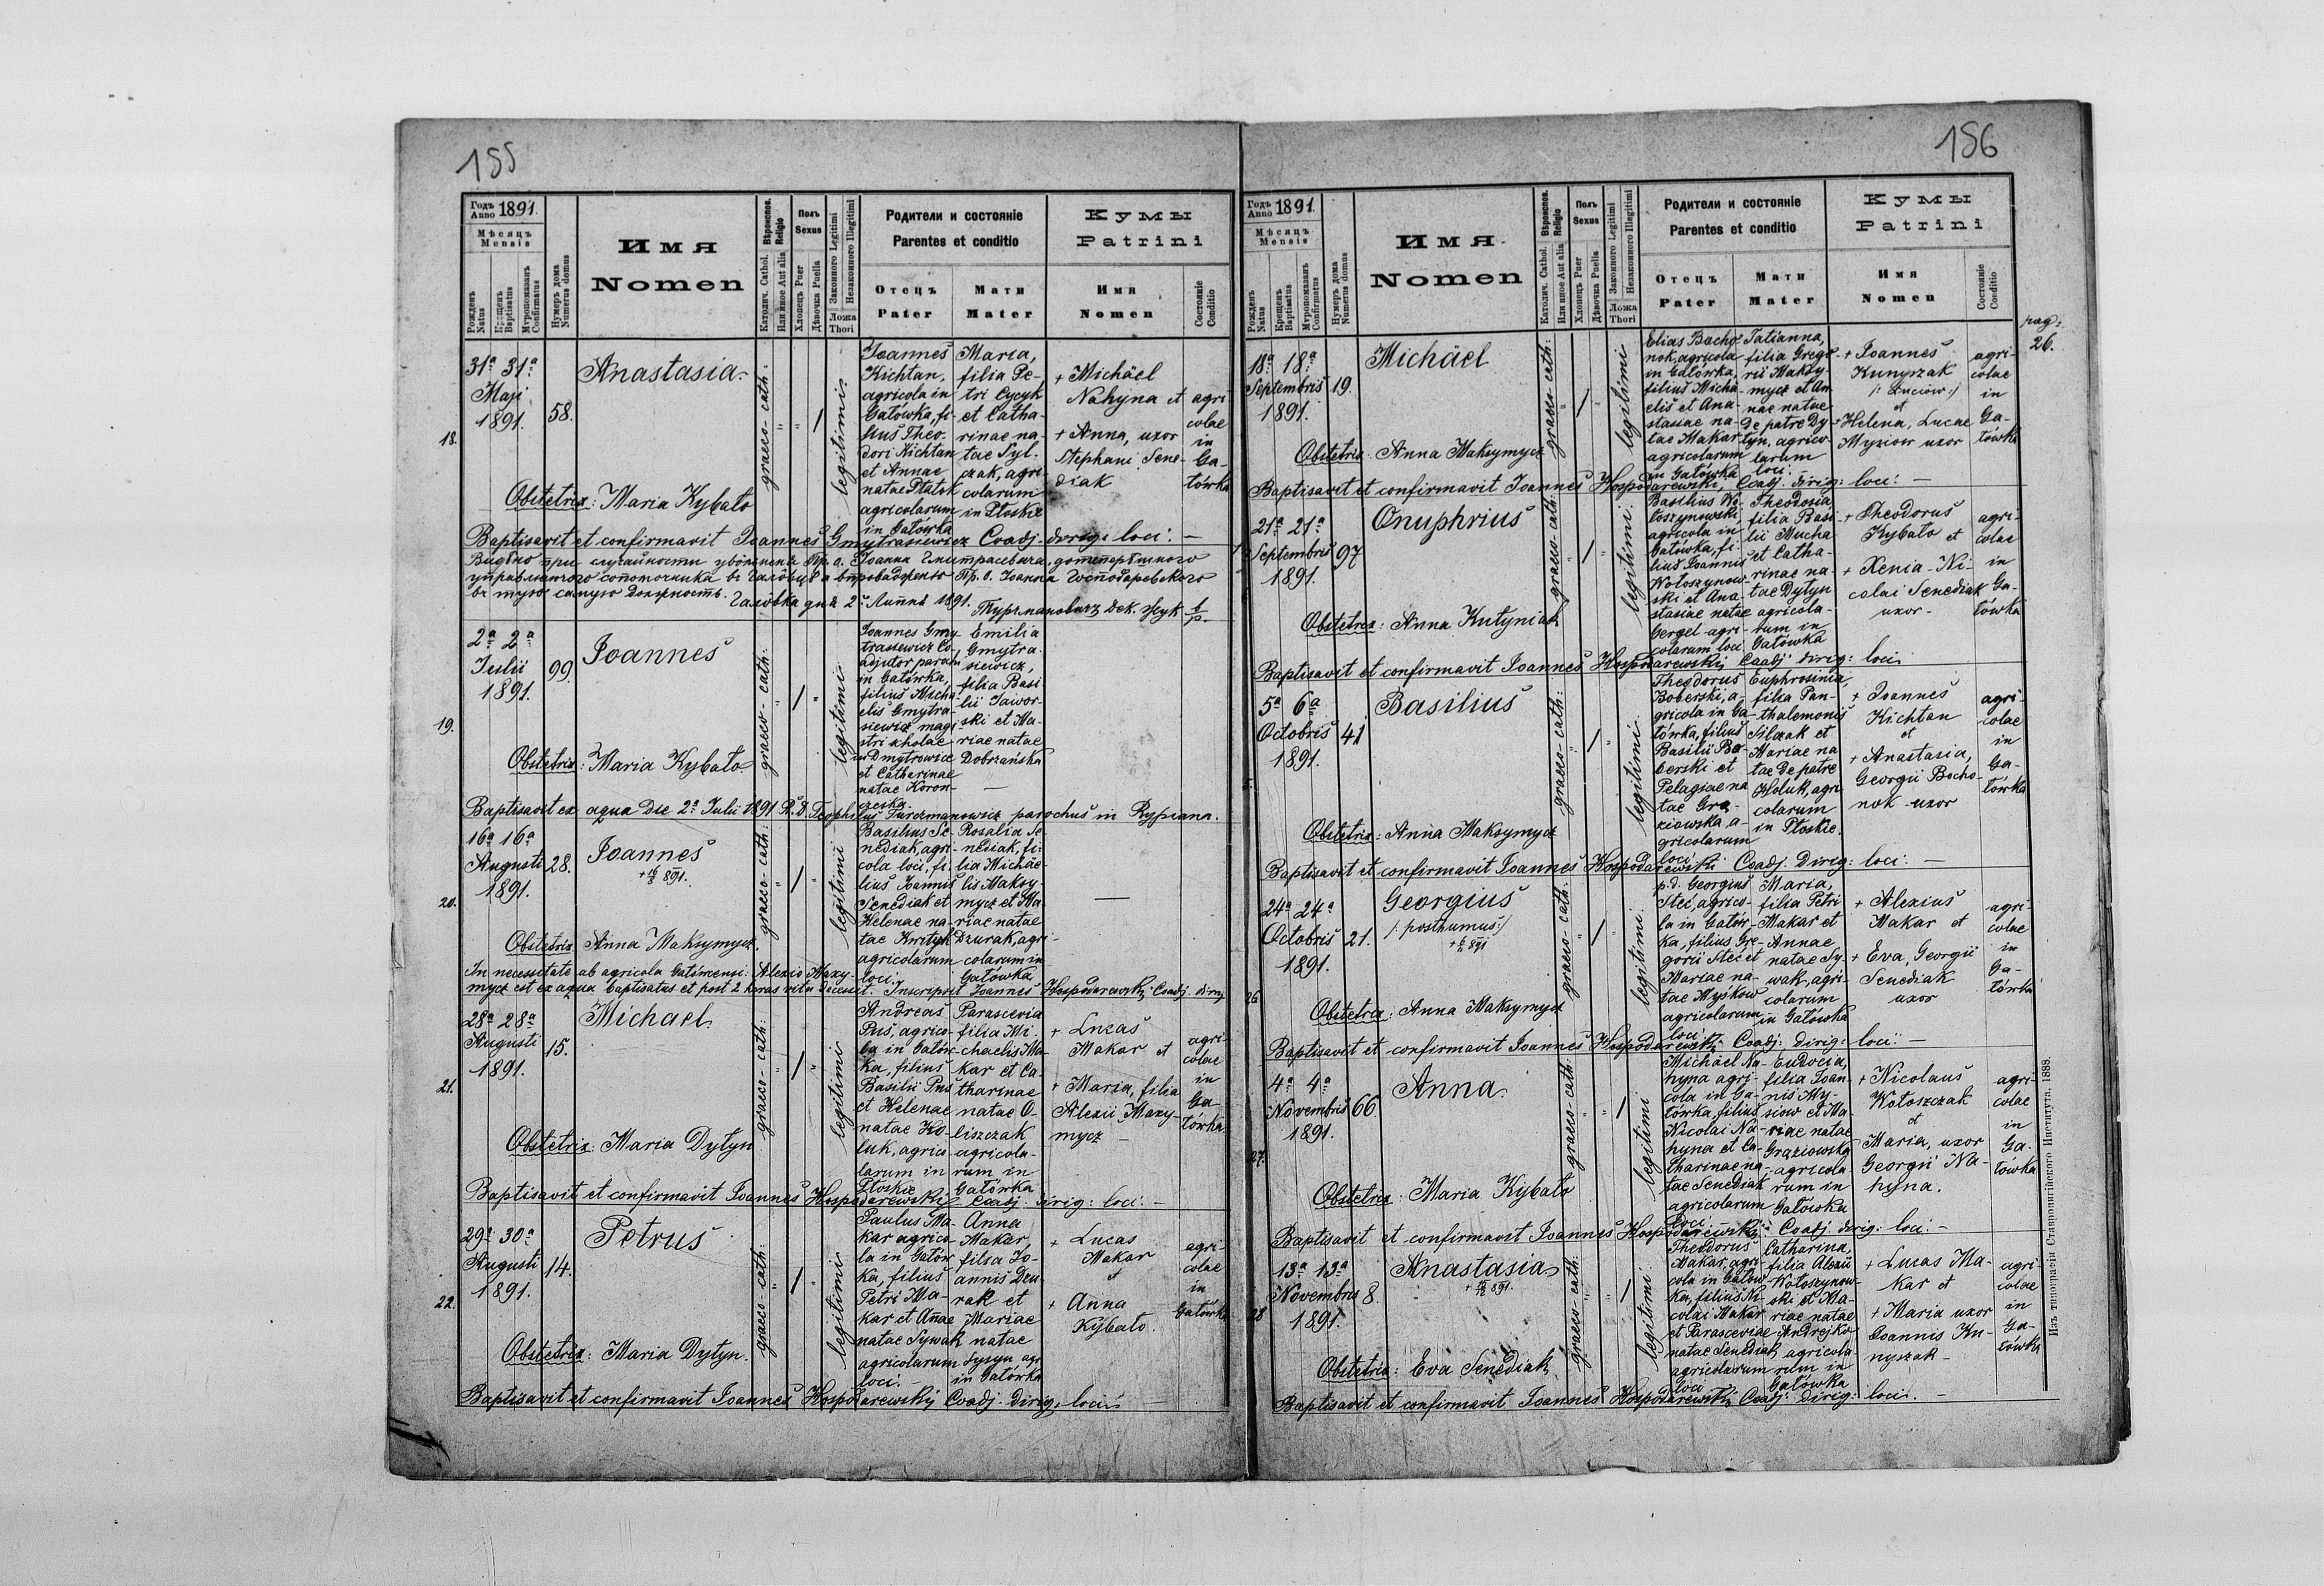 155
Годъ Anno 1891.
Мѣсяцъ Mensis
Рожденъ Natus
Крещенъ Baptisatus
Муропомазанъ Confirmatus
Нумеръ дома Numerus domus
Имя
Nomen
Вѣроиспов. Religio
Католич. Cathol.
Или иное Aut alia
Полъ Sexus
Хлопецъ Puer
Дѣвочка Puella
Законного Legitimi
Незаконного Illegitimi
Ложа Thori
Родители и состояніе
Parentes et conditio
Отецъ
Pater
Мати
Mater
Кумы
Patrini
Имя
Nomen
Состояніе Conditio
18.
31ª 31ª
Maji
1891.
58.
Anastasia
graeco-cath:
legitimi
Joannes
Kichtan,
agricola in
Gatówka, fi-
lius Theo-
dori Kichtan
et Annae
natae Płatsk
agricolarum
in Gatówka
Maria,
filia Pe-
tri Cycyk
et Catha-
rinae na-
tae Syl-
czak, agri-
colarum
in Płoskie
+ Michäel
Nahyna et
+ Anna, uxor
Stephani Sene-
diak
agri-
colae
in
Ga-
tówka
Obstetrix: Maria Kybało
Baptisavit et confirmavit Joannes Gmytrasiewicz Coadj. dirig: loci: —
Видѣно при случайности увôльненя Пр. О. Іоанна Гмитрасевича, дотеперѣшного
управляючого сототрника въ Галôвцѣ а впровадженю Пр. О. Іоанна Господаревского
въ тую самую должность. Галôвка дня 2. Липня 1891.
19.
2ª 2ª
Julii
1891.
99.
Joannes
graeco-cath:
legitimi
Joannes Gmy-
trasiewicz Co-
adjutor paroch
in Gatówka,
filius Micha-
elis Gmytra-
siewicz magi-
stri scholae
in Dmytrowice
et Catherinae
natae Koron-
czeska
Emilia
Gmytra-
siewicz,
filia Basi-
lii Jawor-
ski et Ma-
riae natae
Dobrzańska
—
Obstetrix: Maria Kybało
Baptisavit ex aqua die 2ª Julii 1891 R. D. Teophilus Turczmanowicz parochus in Rypiana.
20.
16ª 16ª
Augusti
1891.
28.
Joannes
+ 16/8 891.
graeco-cath:
legitimi
Basilius Se-
nediak, agri-
cola loci, fi-
lius Joannis
Senediak et
Helenae na-
tae Krityk
agricolarum
loci.
Rosalia Se-
nediak, fi-
lia Michäe-
lis Maksy-
mycz et Ma-
riae natae
Dzurak, agri-
colarum in
Gatówka
—
Obstetrix Anna Maksymycz.
In necessitate ab agricola Gatóvcensi: Alexio Maxy-
mycz est ex aqua baptisatus et post 2 horas vita decessit. Inscripsit Joannes Hospodarewskij Coadj. dirig
21.
28ª 28ª
Augusti
1891.
15.
Michael.
graeco-cath:
legitimi
Andreas
Pus, agrico-
la in Gatów-
ka, filius
Basilii Pus
et Helenae
natae Ho-
luk, agrico-
larum in
Płoskie
Parascevia
filia Mi-
chaelis Ma-
kar et Ca-
tharinae
natae O-
liszczak
agricola-
rum in
Gatówka
+ Lucas
Makar et
+ Maria, filia
Alexii Maxy-
mycz —
agri-
colae
in
Ga-
tówka
Obstetrix: Maria Dytyn
Baptisavit et confirmavit Joannes Hospodarewskij Coadj. dirig: loci: —
22.
29ª 30ª
Augusti
1891.
14.
Petrus
graeco-cath:
legitimi
Paulus Ma-
kar agrico-
la in Gatów-
ka, filius
Petri Ma-
kar et Annae
natae Sywak
agricolarum
loci. —
Anna
Makar,
filia Jo-
annis Dzu-
rak et
Mariae
natae
Dysyn, agr.
in Gatówka
+ Lucas
Makar
et
+ Anna
Kybało.
agri-
colae
in
Gatówka
Obstetrix: Maria Dytyn.
Baptisavit et confirmavit Joannes Hospodarewskij Coadj. dirig: loci:
156
pag: 26.
Годъ Anno 1891.
Мѣсяцъ Mensis
Рожденъ Natus
Крещенъ Baptisatus
Муропомазанъ Confirmatus
Нумеръ дома Numerus domus
Имя
Nomen
Вѣроиспов. Religio
Католич. Cathol.
Или иное Aut alia
Полъ Sexus
Хлопецъ Puer
Дѣвочка Puella
Законного Legitimi
Незаконного Illegitimi
Ложа Thori
Родители и состояніе
Parentes et conditio
Отецъ
Pater
Мати
Mater
Кумы
Patrini
Имя
Nomen
Состояніе Conditio
18ª 18ª
Septembris
1891.
19.
Michäel
graeco-cath:
legitimi
Elias Bocho-
nok, agricola
in Gatówka,
filius Micha-
elis et Ana-
stasiae na-
tae Makar
agricolarum
in Gatówka
Tatianna,
filia Grego-
rii Maksy-
mycz et An-
nae natae
de patre Dy-
tyn, agrico-
larum
loci.
+ Joannes
Kunyszak
/: Luciów:/
et
+ Helena, Lucae
Myziow uxor
agri-
colae
in
Ga-
tówka
Obstetrix: Anna Maksymycz
Baptisavit et confirmavit Joannes Hospodarewskij, Coadj. dirig: loci: —
21ª 21ª
Septembris
1891.
97
Onuphrius
graeco-cath:
legitimi.
Basilius Wo-
łoszynowski,
agricola in
Gatówka, fi-
lius Joannis
Wołoszynow-
ski et Ana-
stasiae natae
Gergel agri-
colarum loci
Theodosia,
filia Basi-
lii Mucha
et Catha-
rinae na-
tae Dytyn
agricola-
rum in
Gatówka
+ Theodorus
Kybało et
+ Xenia Ni-
colai Senediak
uxor
agri-
colae
in
Ga-
tówka
Obstetrix: Anna Kutyniak
Baptisavit et confirmavit Joannes Hospodarewskij Coadj. dirig: loci
5ª 6ª
Octobris
1891.
41
Basilius
graeco-cath:
legitimi.
Theodorus
Boberski, a-
gricola in Ga-
tówka, filius
Basilii Bo-
berski et
Pelagiae na-
tae Gra-
ziowska, a-
gricolarum
loci
Euphrosinia,
filia Pan-
thalemonis
Silczak et
Mariae na-
tae de patre
Holuk, agri-
colarum
in Płoskie.
+ Joannes
Kichtan
et
+ Anastasia,
Georgii Bocho-
nok uxor
agri-
colae
in
Ga-
tówka
Obstetrix: Anna Maksymycz
Baptisavit et confirmavit Joannes Hospodarewskij Coadj. dirig: loci: —
26
24ª 24ª
Octobris
1891.
21.
Georgius
/: posthumus:/
graeco-cath:
legitimi.
p.d. Georgius
Stec, agrico-
la in Gatów-
ka, filius Gre-
gorii Stec et
Mariae na-
tae Myśkow
agricolarum
loci
Maria,
filia Petri
Makar et
Annae
natae Sy-
wak, agri-
colarum
in Gatówka
+ Alexius
Makar et
+ Eva, Georgii
Senediak
uxor
agri-
colae
in
Ga-
tówka
Obstetrix: Anna Maksymycz
Baptisavit et confirmavit Joannes Hospodarewskij Coadj. dirig: loci: —
27.
4ª 4ª
Novembris
1891.
66.
Anna.
graeco-cath:
legitimi
Michael Na-
hyna agri-
cola in Ga-
tówka, filius
Nicolai Na-
hyna et Ca-
tharinae na-
tae Senediak
agricolarum
loci.
Eudocia,
filia Joan-
nis My-
siow et Ma-
riae natae
Graziowska
agricola-
rum in
Gatówka
+ Nicolaus
Wołoszczak
et
Maria, uxor
Georgii Na-
hyna.
agri-
colae
in
Ga-
tówka
Obstetrix: Maria Kybało
Baptisavit et confirmavit Joannes Hospodarewskij Coadj. dirig: loci: —
28
13ª 13ª
Novembris
1891.
8.
Anastasia
graeco-cath:
legitimi.
Theodorus
Makar, agri-
cola in Gatów-
ka, filius Ni-
colai Makar
et Parasceviae
natae Senediak
agricolarum
loci
Catharina,
filia Alexii
Wołoszynow-
ski et Ma-
riae natae
Andrejko
agricola-
rum in
Gatówka
+ Lucas Ma-
kar et
+ Maria uxor
Joannis Ku-
nyszak —
agri-
colae
in
Ga-
tówka
Obstetrix: Eva Senediak
Baptisavit et confirmavit Joannes Hospodarewskij Coadj. dirig: loci. —
Изъ типографіи Ставропигійского Института. 1888.